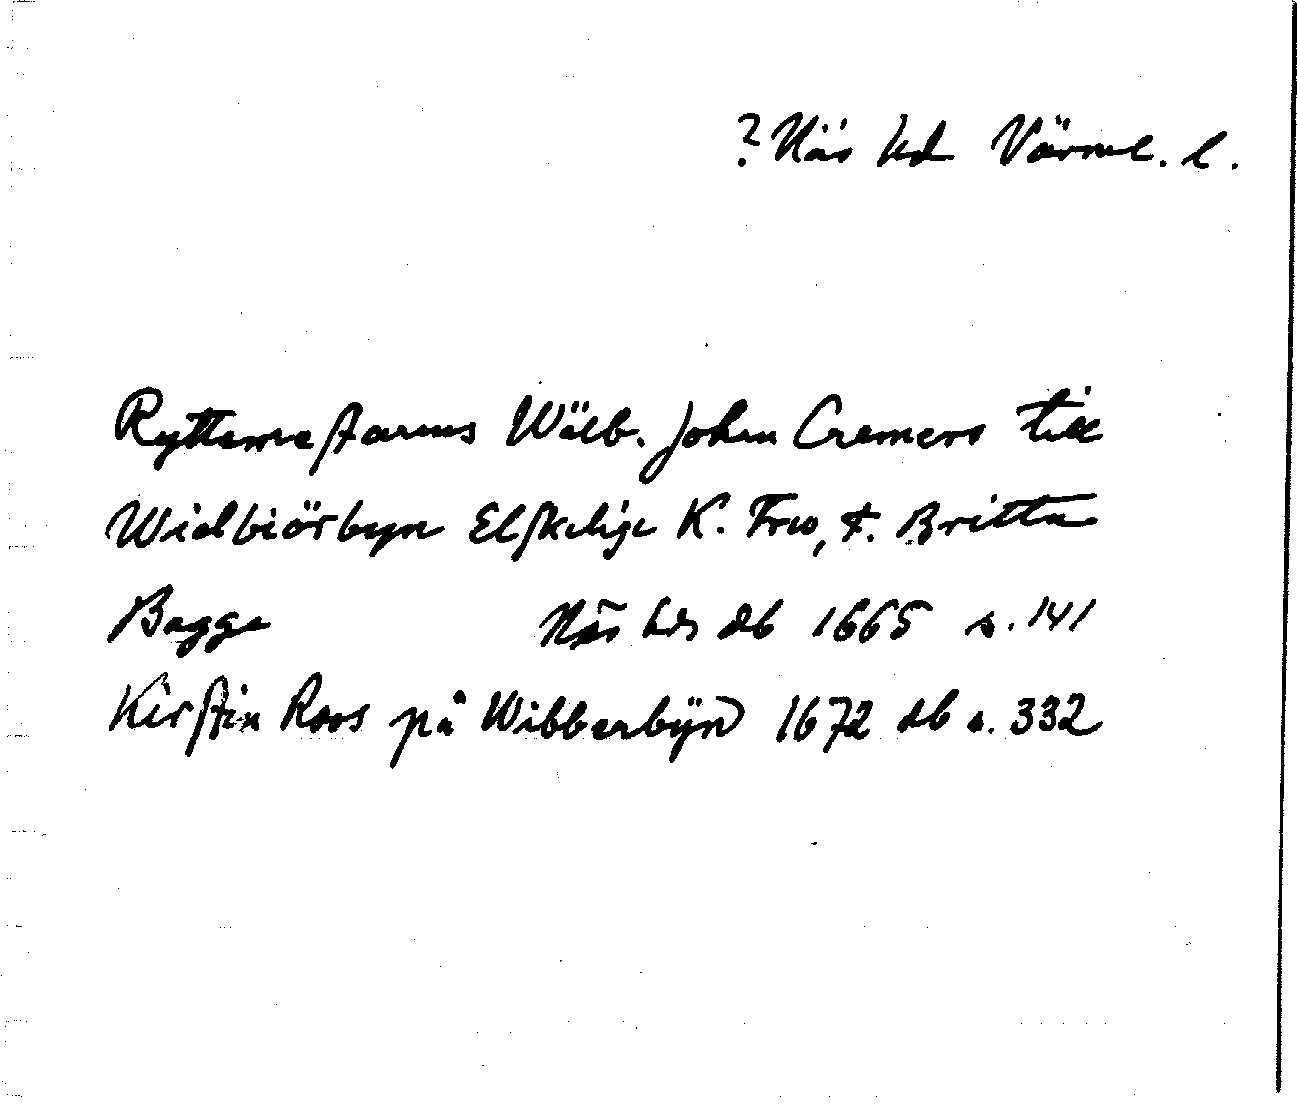 ? Näs hd Värml. l.
Ryttmestarens Wälb. Johan Cremers till
Widbiörbyn Elskelige K. Frw, f. Britta
Bagge Näs hds db 1665 s. 141
Kirstin Roos på Wibberbÿn 1672 db s. 332